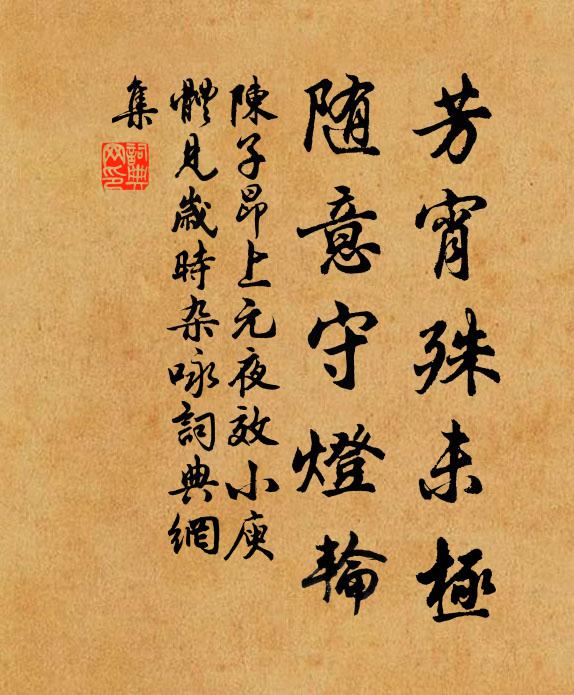 芳宵殊未極
随意守燈輪
陳子昂上元夜效小庾
體見歲時杂咏詞典網
集
詞典网印